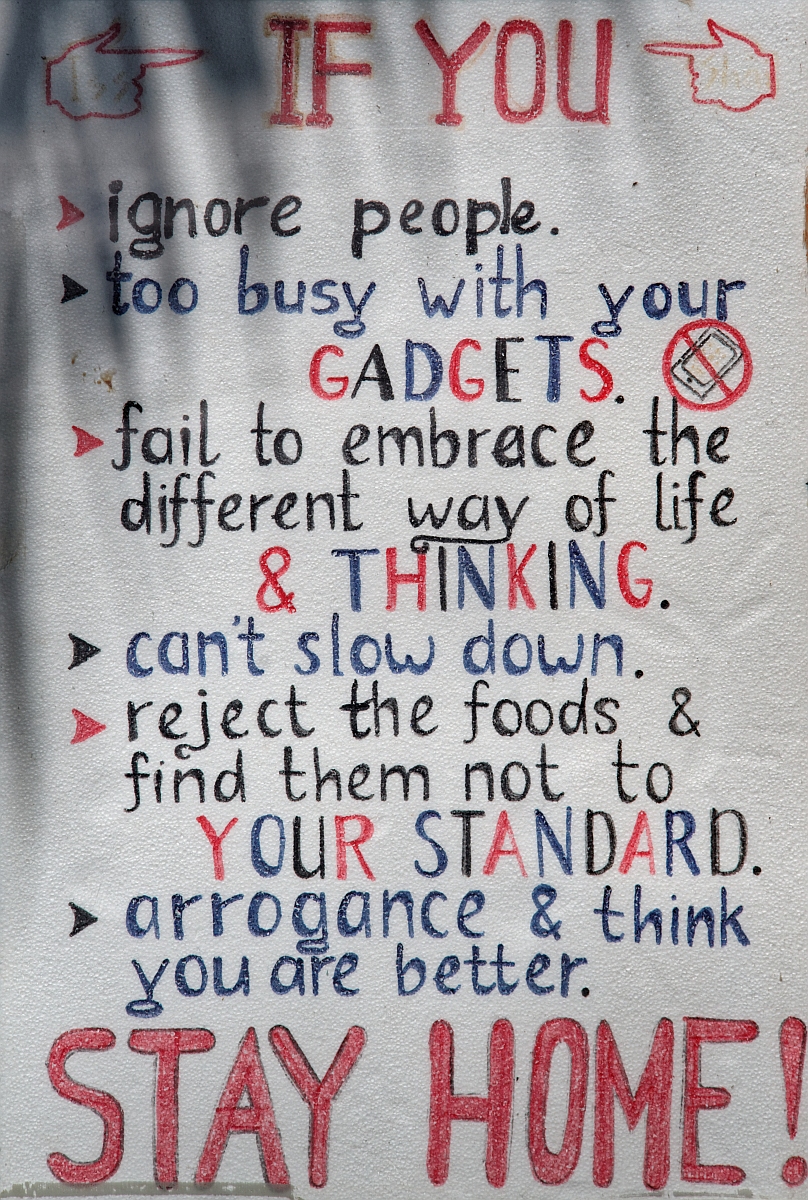 IF YOU
ignore people.
too busy with your
GADGETS.
fail to embrace the
different way of life
& THINKING.
can't slow down.
reject the foods &
find them not to
YOUR STANDARD.
arrogance & think
you are better.
STAY HOME!